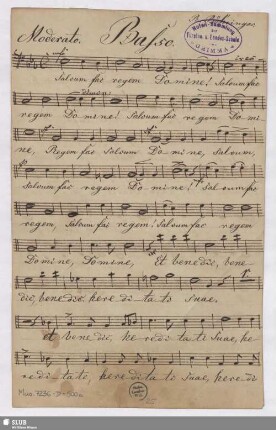 Moderato. Basso.
Salvum fac regem Domine! Salvum fac
regem Do mi ne! Salvum fac regem Do mi
ne, Regem fac salvum Do mi ne, salvum
salvum fac regem Do mi ne! Salvum fac
regem, salvum fac regem! Salvum fac regem
Domine, Domine, Et benedic, bene
dic, benedic here di ta ti suae,
et bene dic, he redi ta ti suae, he
redi tati, here di ta ti suae, here di
Mus. 3236-D-500a
SLUB